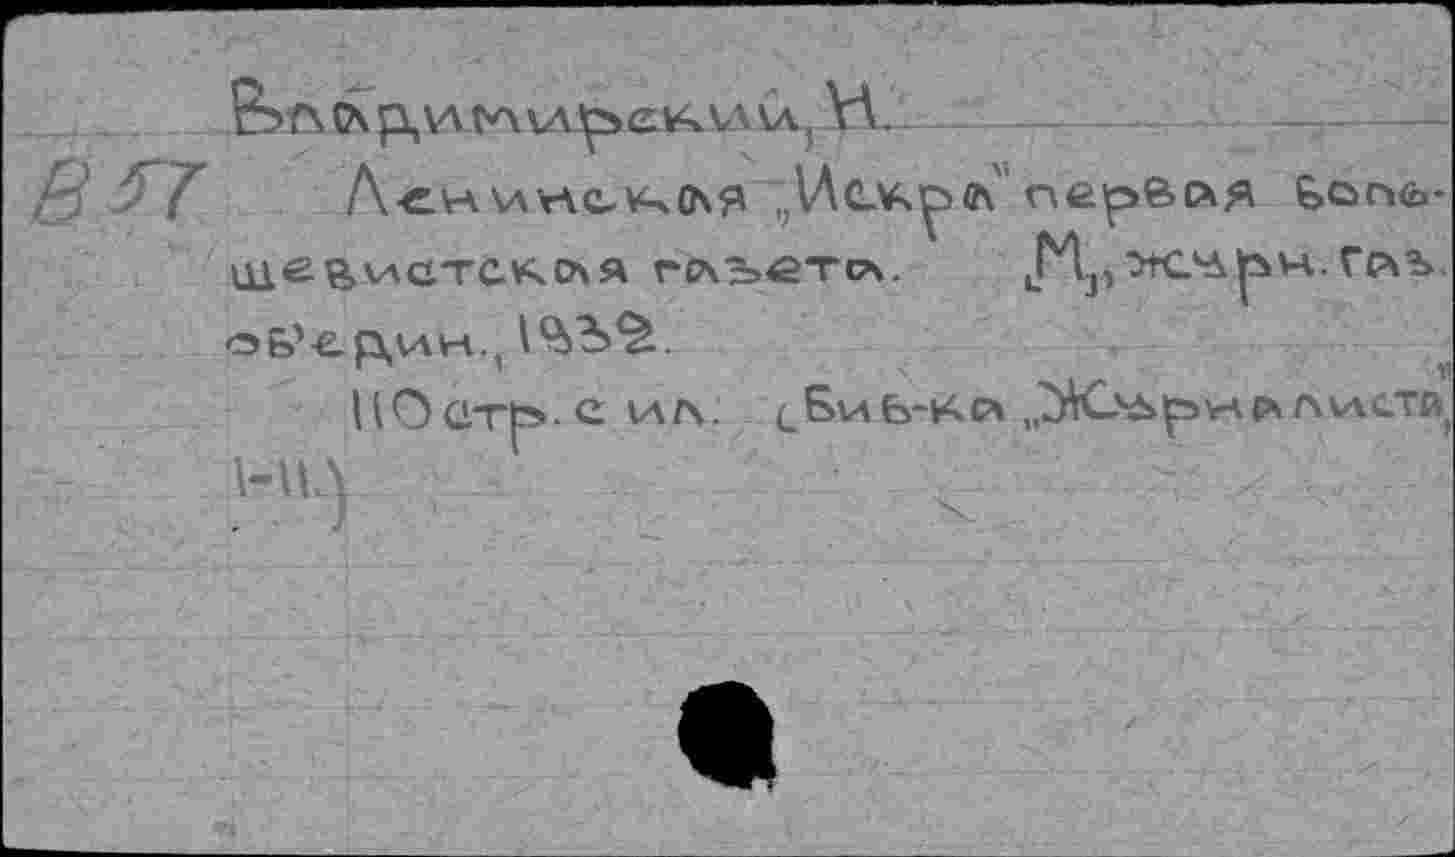 Владимирский, Н.
В57 Ленинская „Искра" первая боль-
шевистская газета. М., журн. газ.
об'един., 1932.
110 стр. с ил. (Биб-ка „Журналиста"
1-11.)